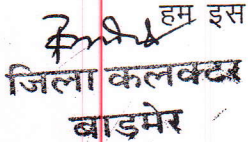 हम इस
जिला कलक्टर
बाड़मेर